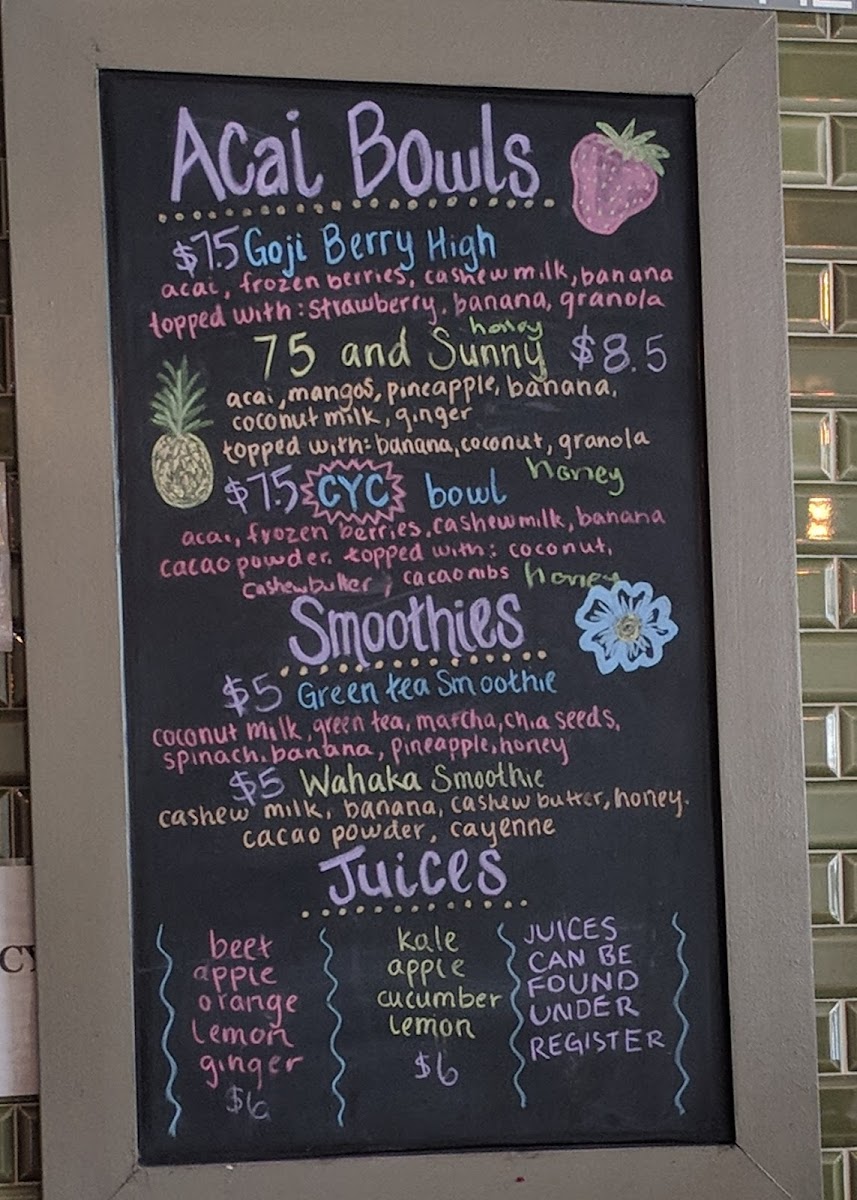 Acai Bowls
$7.5 Goji Berry High
acai, frozen berries, cashew milk, banana
topped with: strawberry, banana, granola
honey
75 and Sunny $8.5
acai, mangos, pineapple, banana,
coconut milk, ginger
topped with: banana, coconut, granola
honey
$7.5 CYC bowl
acai, frozen berries, cashew milk, banana
cacao powder. topped with: coconut,
cashew butter, cacao nibs honey
Smoothies
$5 Green tea Smoothie
coconut milk, green tea, matcha, chia seeds,
spinach, banana, pineapple, honey
$5 Wahaka Smoothie
cashew milk, banana, cashew butter, honey.
cacao powder, cayenne
Juices
beet
apple
orange
lemon
ginger
$6
kale
apple
cucumber
lemon
$6
JUICES
CAN BE
FOUND
UNDER
REGISTER